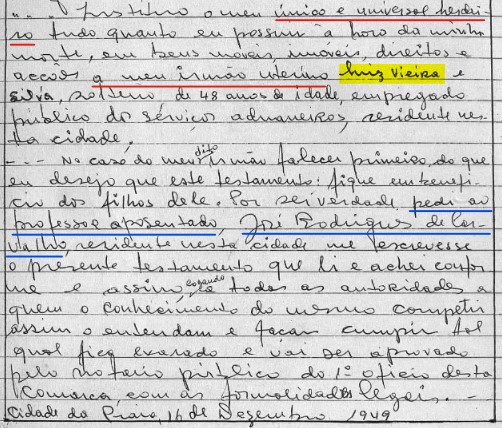 ". . . Instituo o meu único e universal herdei-
ro tudo quanto eu possuir à hora da minha
morte, em bens moveis, imóveis, direitos e
acções a meu irmão uterino Luiz Vieira e
Silva, solteiro, de 48 anos de idade, empregado
público dos serviços aduaneiros, residente nes-
ta cidade;
- . . . No caso do meu dito irmão falecer primeiro do que
eu desejo que este testamento fique em benefi-
cio dos filhos dele. Por ser verdade pedi ao
professor aposentado, José Rodrigues de Car-
valho, residente nesta cidade me escrevesse
o presente testamento que li e achei confor
me e assino, rogando a todas as autoridades a
quem o conhecimento do mesmo competir
assim o entendam e façam cumprir tal
qual fica exarado e vai ser aprovado
pelo notario público do 1º oficio desta
Comarca, com as formalidades legais. -
Cidade da Praia, 16 de Dezembro 1949